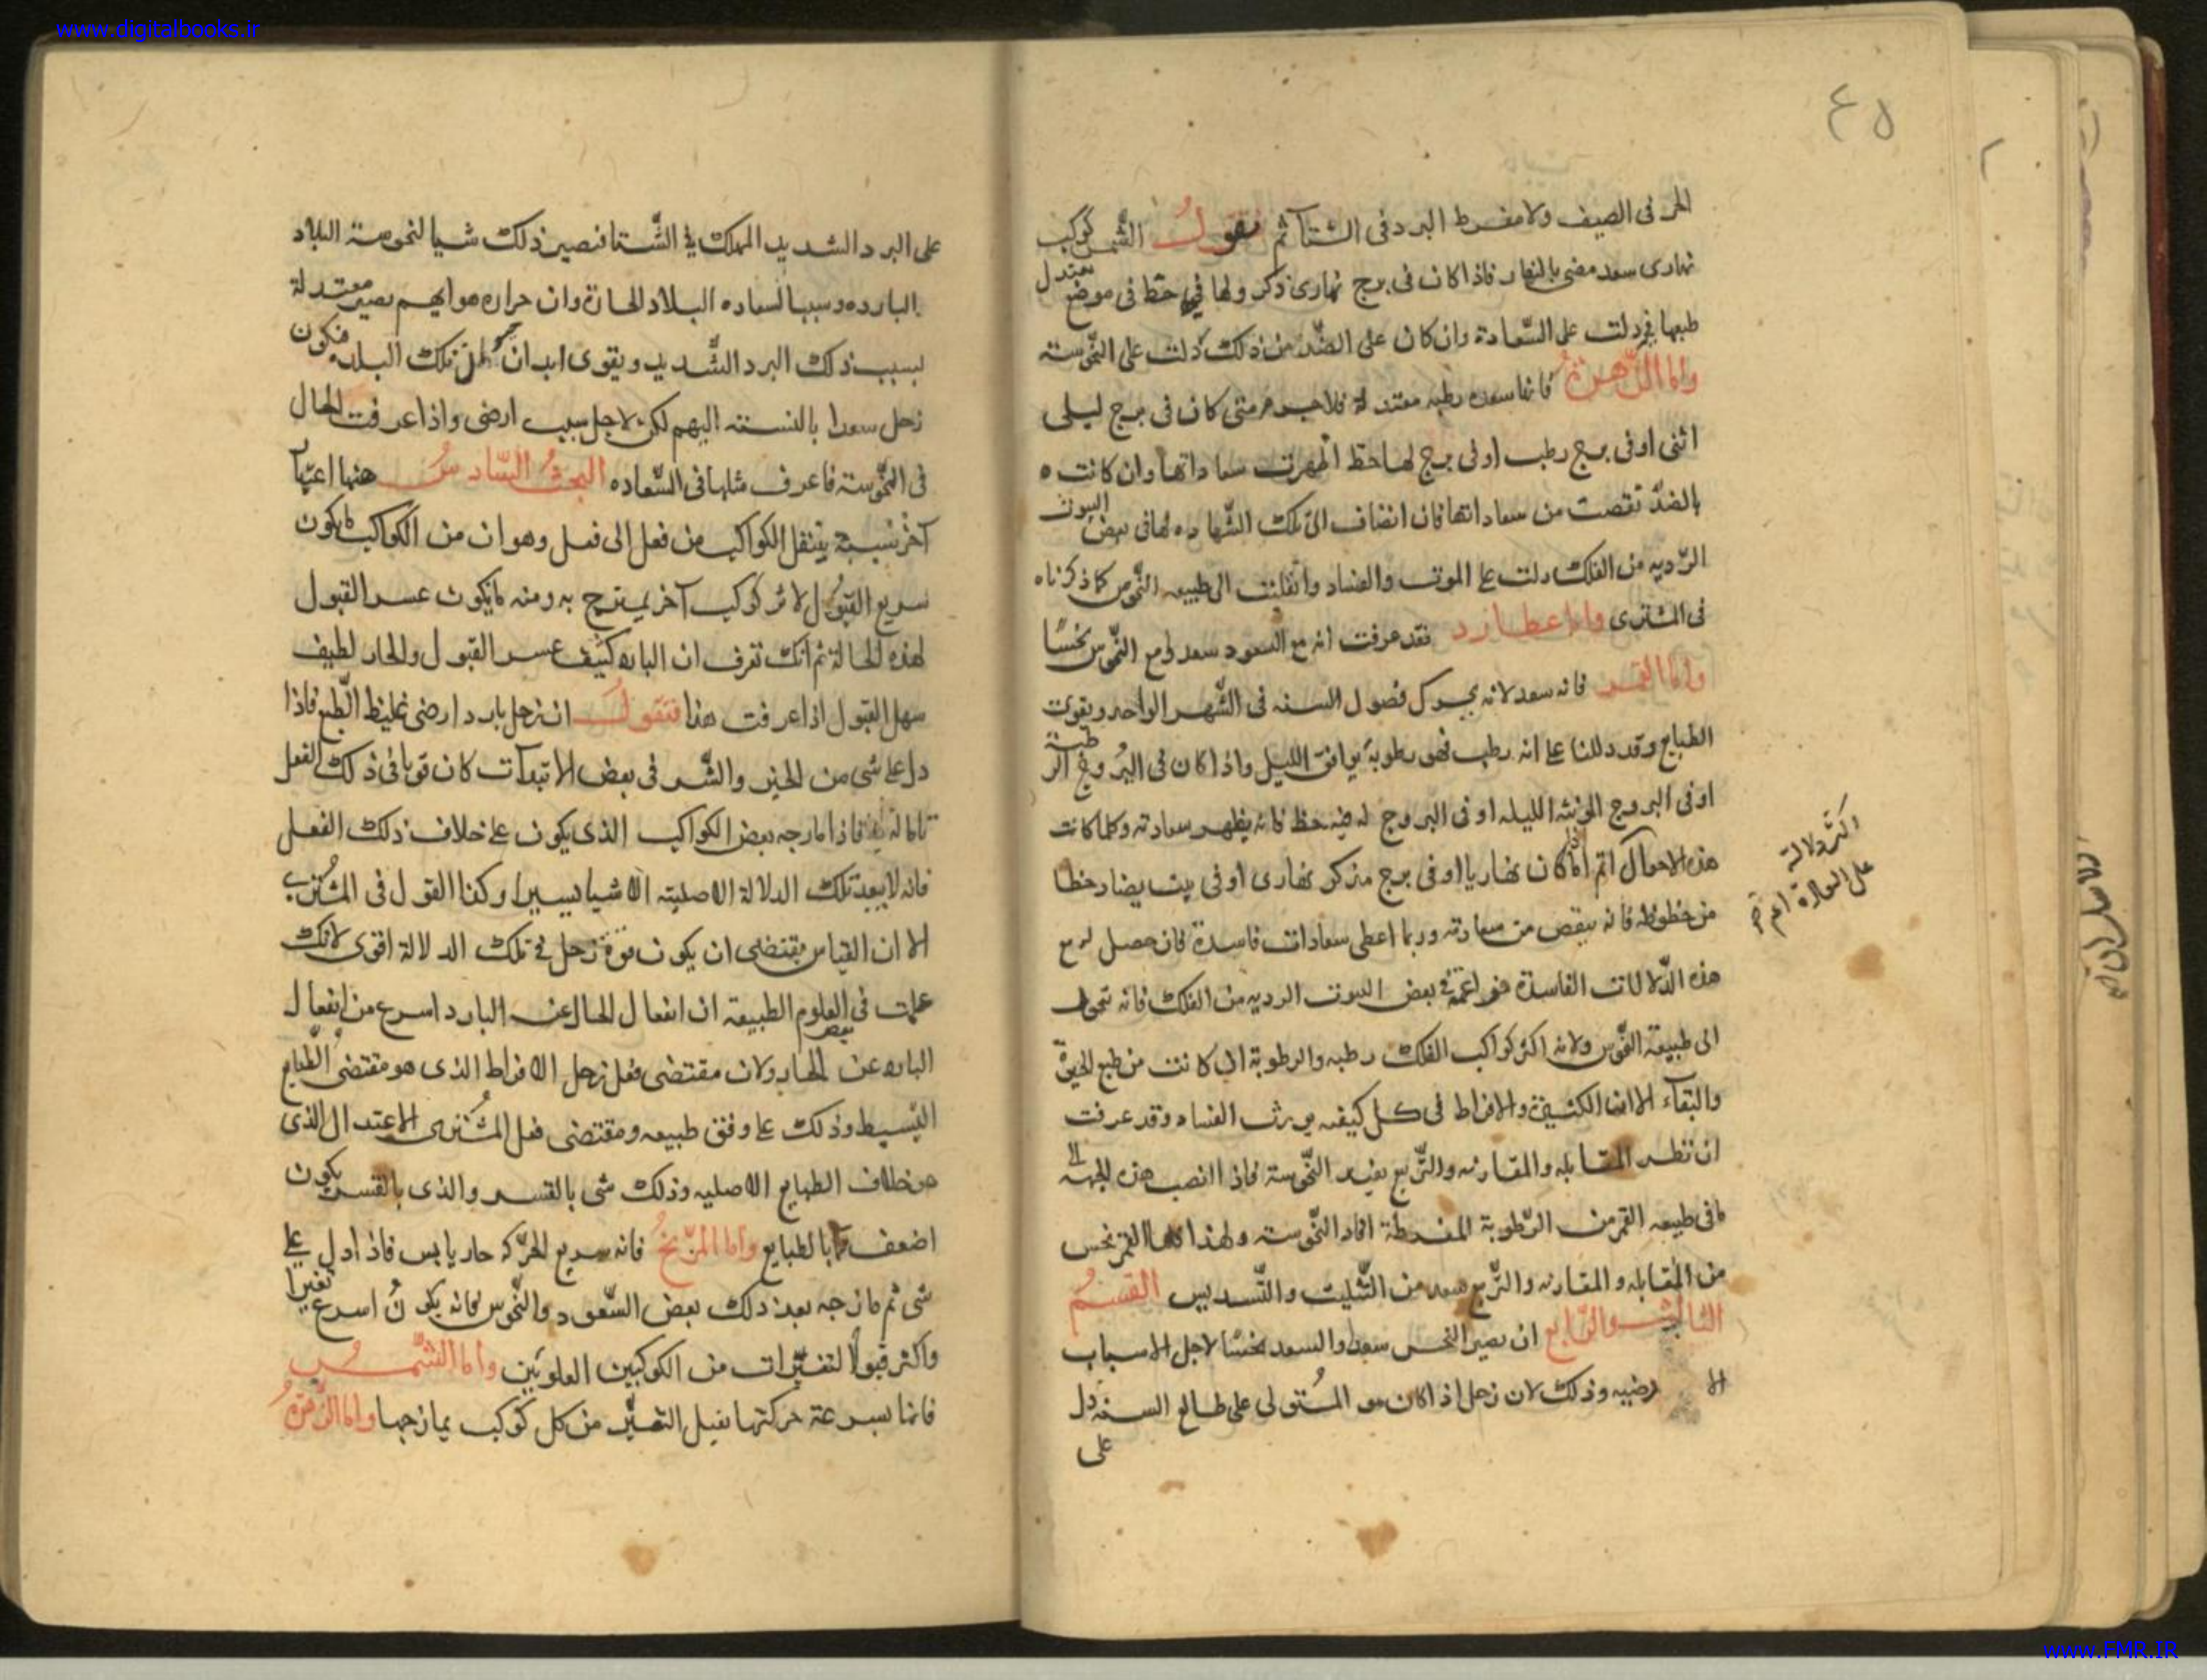 www.digitalbooks.ir
٤٥
الحر فى الصيف ولا مفرط البرد فى الشتآ ثم نقول الشمس كوكب
نهارى سعد مضى بالنهار فاذا كان فى برج نهارى ذكر ولها فيه حظ فى موضع معتدل
طبعها دلت على السّعادة وان كان على الضّد من ذلك دلت على النّحوسته
واما الزّهرةُ فانها سعده رطبه معتدلة فلا جرم متى كان فى برج ليلى
انثى او فى برج رطب او فى برج لها حظ اظهرت سعاداتها وان كانت
بالضدّ نقصت من سعاداتها فان انضاف الى تلك الشّهاده لها فى بعض البيوت
الرّديه من الفلك دلت على الموت والفساد وانقلبت الى طبيعه النّحوس كما ذكرناه
فى المشترى واما عطارد فقد عرفت انه مع السعود سعد ومع النّحوس نحسًا
واما القمر فانه سعد لانه يحرك فصول السنه فى الشّهر الواحد ويقوى
الطبايع وقد دللنا على انه رطب فهو رطوبة يوافق الليل واذا كان فى البُروج الرطبة
او فى البروج المونثه الليله او فى البروج له فيه حظ فانه يظهر سعادته وكلما كانت
هذه الاحوال اتم اذا كان نهاريا او فى برج مذكر نهارى او فى بيت يضاد حظا
اكثر دلالة
على السعادة اعم
من حظوظه فانه ينقص من سعادته وربما اعطى سعادات فاسدة فان حصل له مع
هذه الدّلالات الفاسدة فى بعض البيوت الرديه من الفلك فانه تحول
الى طبيعة النّحوس ولانه اكثر كواكب الفلك رطبه والرطوبة ان كانت من طبع الحيوة
والبقآء الا ان الكثيفة والافراط فى كل كيفيه يورث الفساد وقد عرفت
ان نظر المقابله والمقارنه والتّربيع يفيد النّحوسته فاذا انصب هذه الجهه الى
ما فى طبيعه القمر من الرّطوبة المفرطة افاد النّحوسته ولهذا القمر نحس
من المقابله والمقارنه والتّربيع سعد من التّثليث والتّسديس القسمُ
الثالث والرّابع ان يصير النحس سعدا والسعد نحسًا لاجل الاسباب
الا رضيه وذلك لان زحل اذا كان هو المُستولى على طالع السنه دل
على
على البرد الشديد المهلك فى الشّتا فيصير ذلك شيا لنحوسته البلاد
البارده وسببا لسعاده البلاد الحارة وان حراره هوايهم يصير معتدلة
بسبب ذلك البرد الشّديد ويقوى ابدان اهل تلك البلده فيكون
زحل سعدا بالنسته اليهم لكن لاجل سبب ارضى واذا عرفت الحال
فى النّحوسته فاعرف مثلها فى السّعاده البحثُ السّادسُ ههنا اعتبار
آخر بسببه ينتقل الكواكب من فعل الى فعل وهو ان من الكواكب ما يكون
سريع القبول لاثر كوكب آخر يمتزج به ومنه ما يكون عسر القبول
لهذه الحالة ثم انك تعرف ان البارد كثيف عسر القبول والحار لطيف
سهل القبول اذا عرفت هذا فنقول ان زحل بارد ارضى غليظ الطّبع فاذا
دل على شى من الخير والشّر فى بعض الابتدآت كان قويا فى ذلك الفعل
فاذا مازجه بعض الكواكب الذى يكون على خلاف ذلك الفعل
فانه لا يبعد تلك الدلالة الاصليته الا شيا يسيرا وكذا القول فى المُشترى
الا ان القياس يقتضى ان يكون قوة زحل فى تلك الدلالة اقوى لانك
علمت فى العلوم الطبيعة ان انفعال الحار عن البارد اسرع من انفعال
البارد عن الحار ولان مقتضى فعل زحل الافراط الذى هو مقتضى الطّبايع
البسيط وذلك على وفق طبيعه ومقتضى فعل المُشترى الاعتدال الذى
هو خلاف الطبايع الاصليه وذلك شى بالقسر والذى بالقسر يكون
اضعف مما بالطبايع واما المرّيخُ فانه سريع الحرّكه حار يابس فاذا دل على
شى ثم مازجه بعد ذلك بعض السّعود والنّحوس فانه يكون اسرع تغيرا
واكثر قبولًا لتغيّرات من الكوكبين العلويين واما الشّمسُ
فانها بسرعة حركتها يقبل التغيّر من كل كوكب يمازجها واما الزّهرةُ
www.FMR.IR